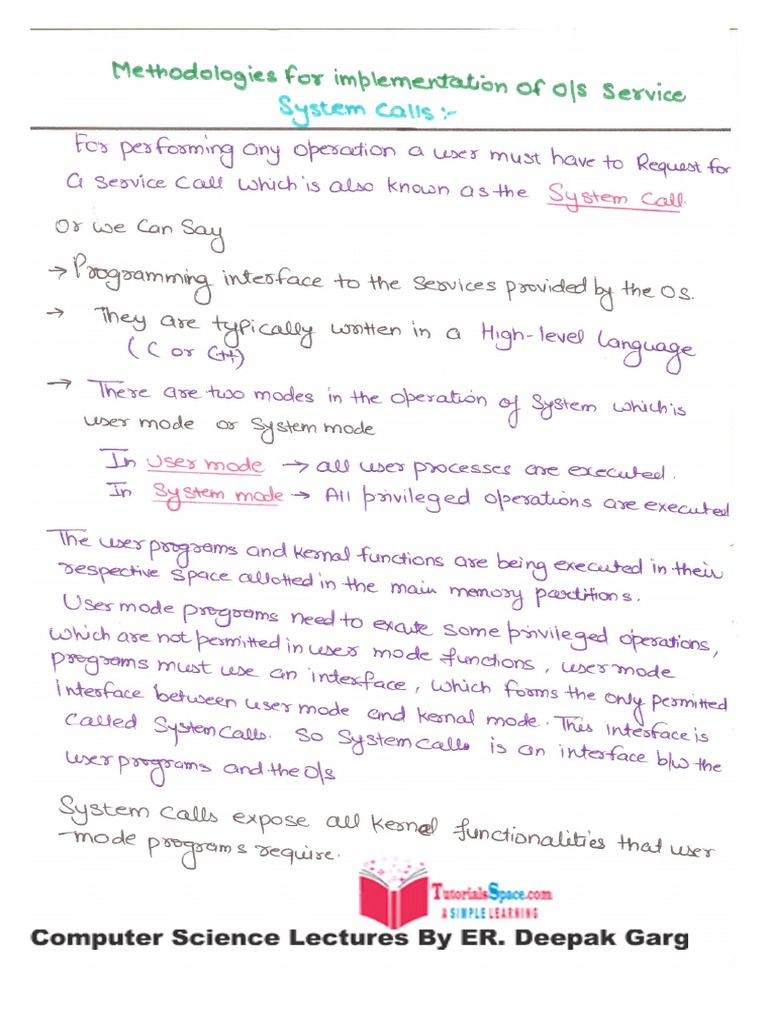 Methodologies for implementation of O/S Service
System Calls:-
For performing any operation a user must have to Request for
a service call which is also known as the System Call.
Or we Can Say
→ Programming interface to the services provided by the OS.
→ They are typically written in a High-level Language
(C or C++)
→ There are two modes in the operation of system which is
user mode or System mode
In User mode → all user processes are executed.
In System mode → All privileged operations are executed
The user programs and kernal functions are being executed in their
respective space allotted in the main memory partitions.
User mode programs need to excute some privileged operations,
which are not permitted in user mode functions, user mode
programs must use an interface, which forms the only permitted
interface between user mode and kernal mode. This interface is
called System Calls. So System Calls is an interface b/w the
user programs and the O/S
System Calls expose all kernel functionalities that user
-mode programs require.
TutorialsSpace.com
A SIMPLE LEARNING
Computer Science Lectures By ER. Deepak Garg